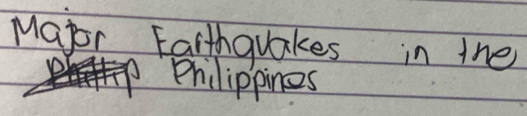 Major Earthquakes in the
Philippines